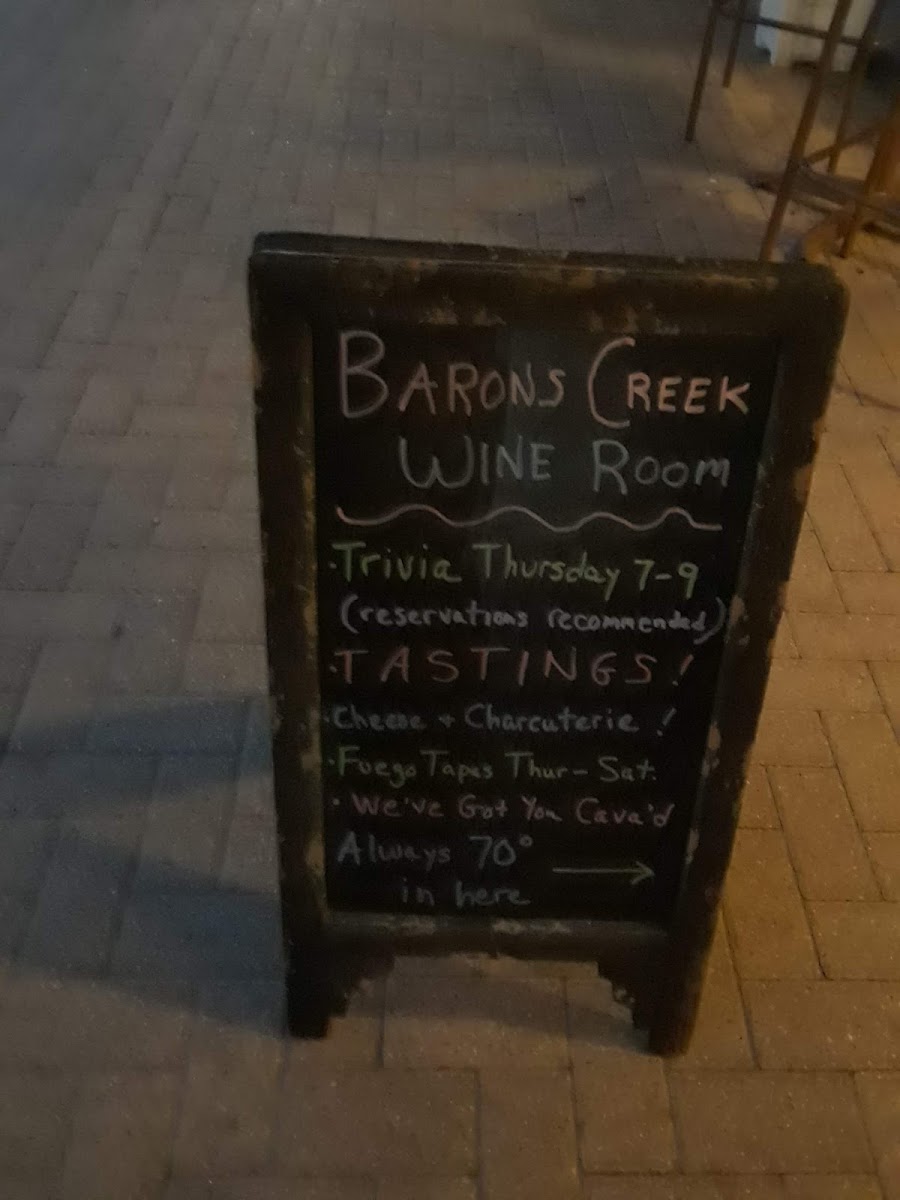 BARONS CREEK
WINE ROOM
·Trivia Thursday 7-9
(reservations recommended)
·TASTINGS!
·Cheese + Charcuterie!
·Fuego Tapas Thur- Sat.
·We've Got You Cava'd
Always 70° →
in here